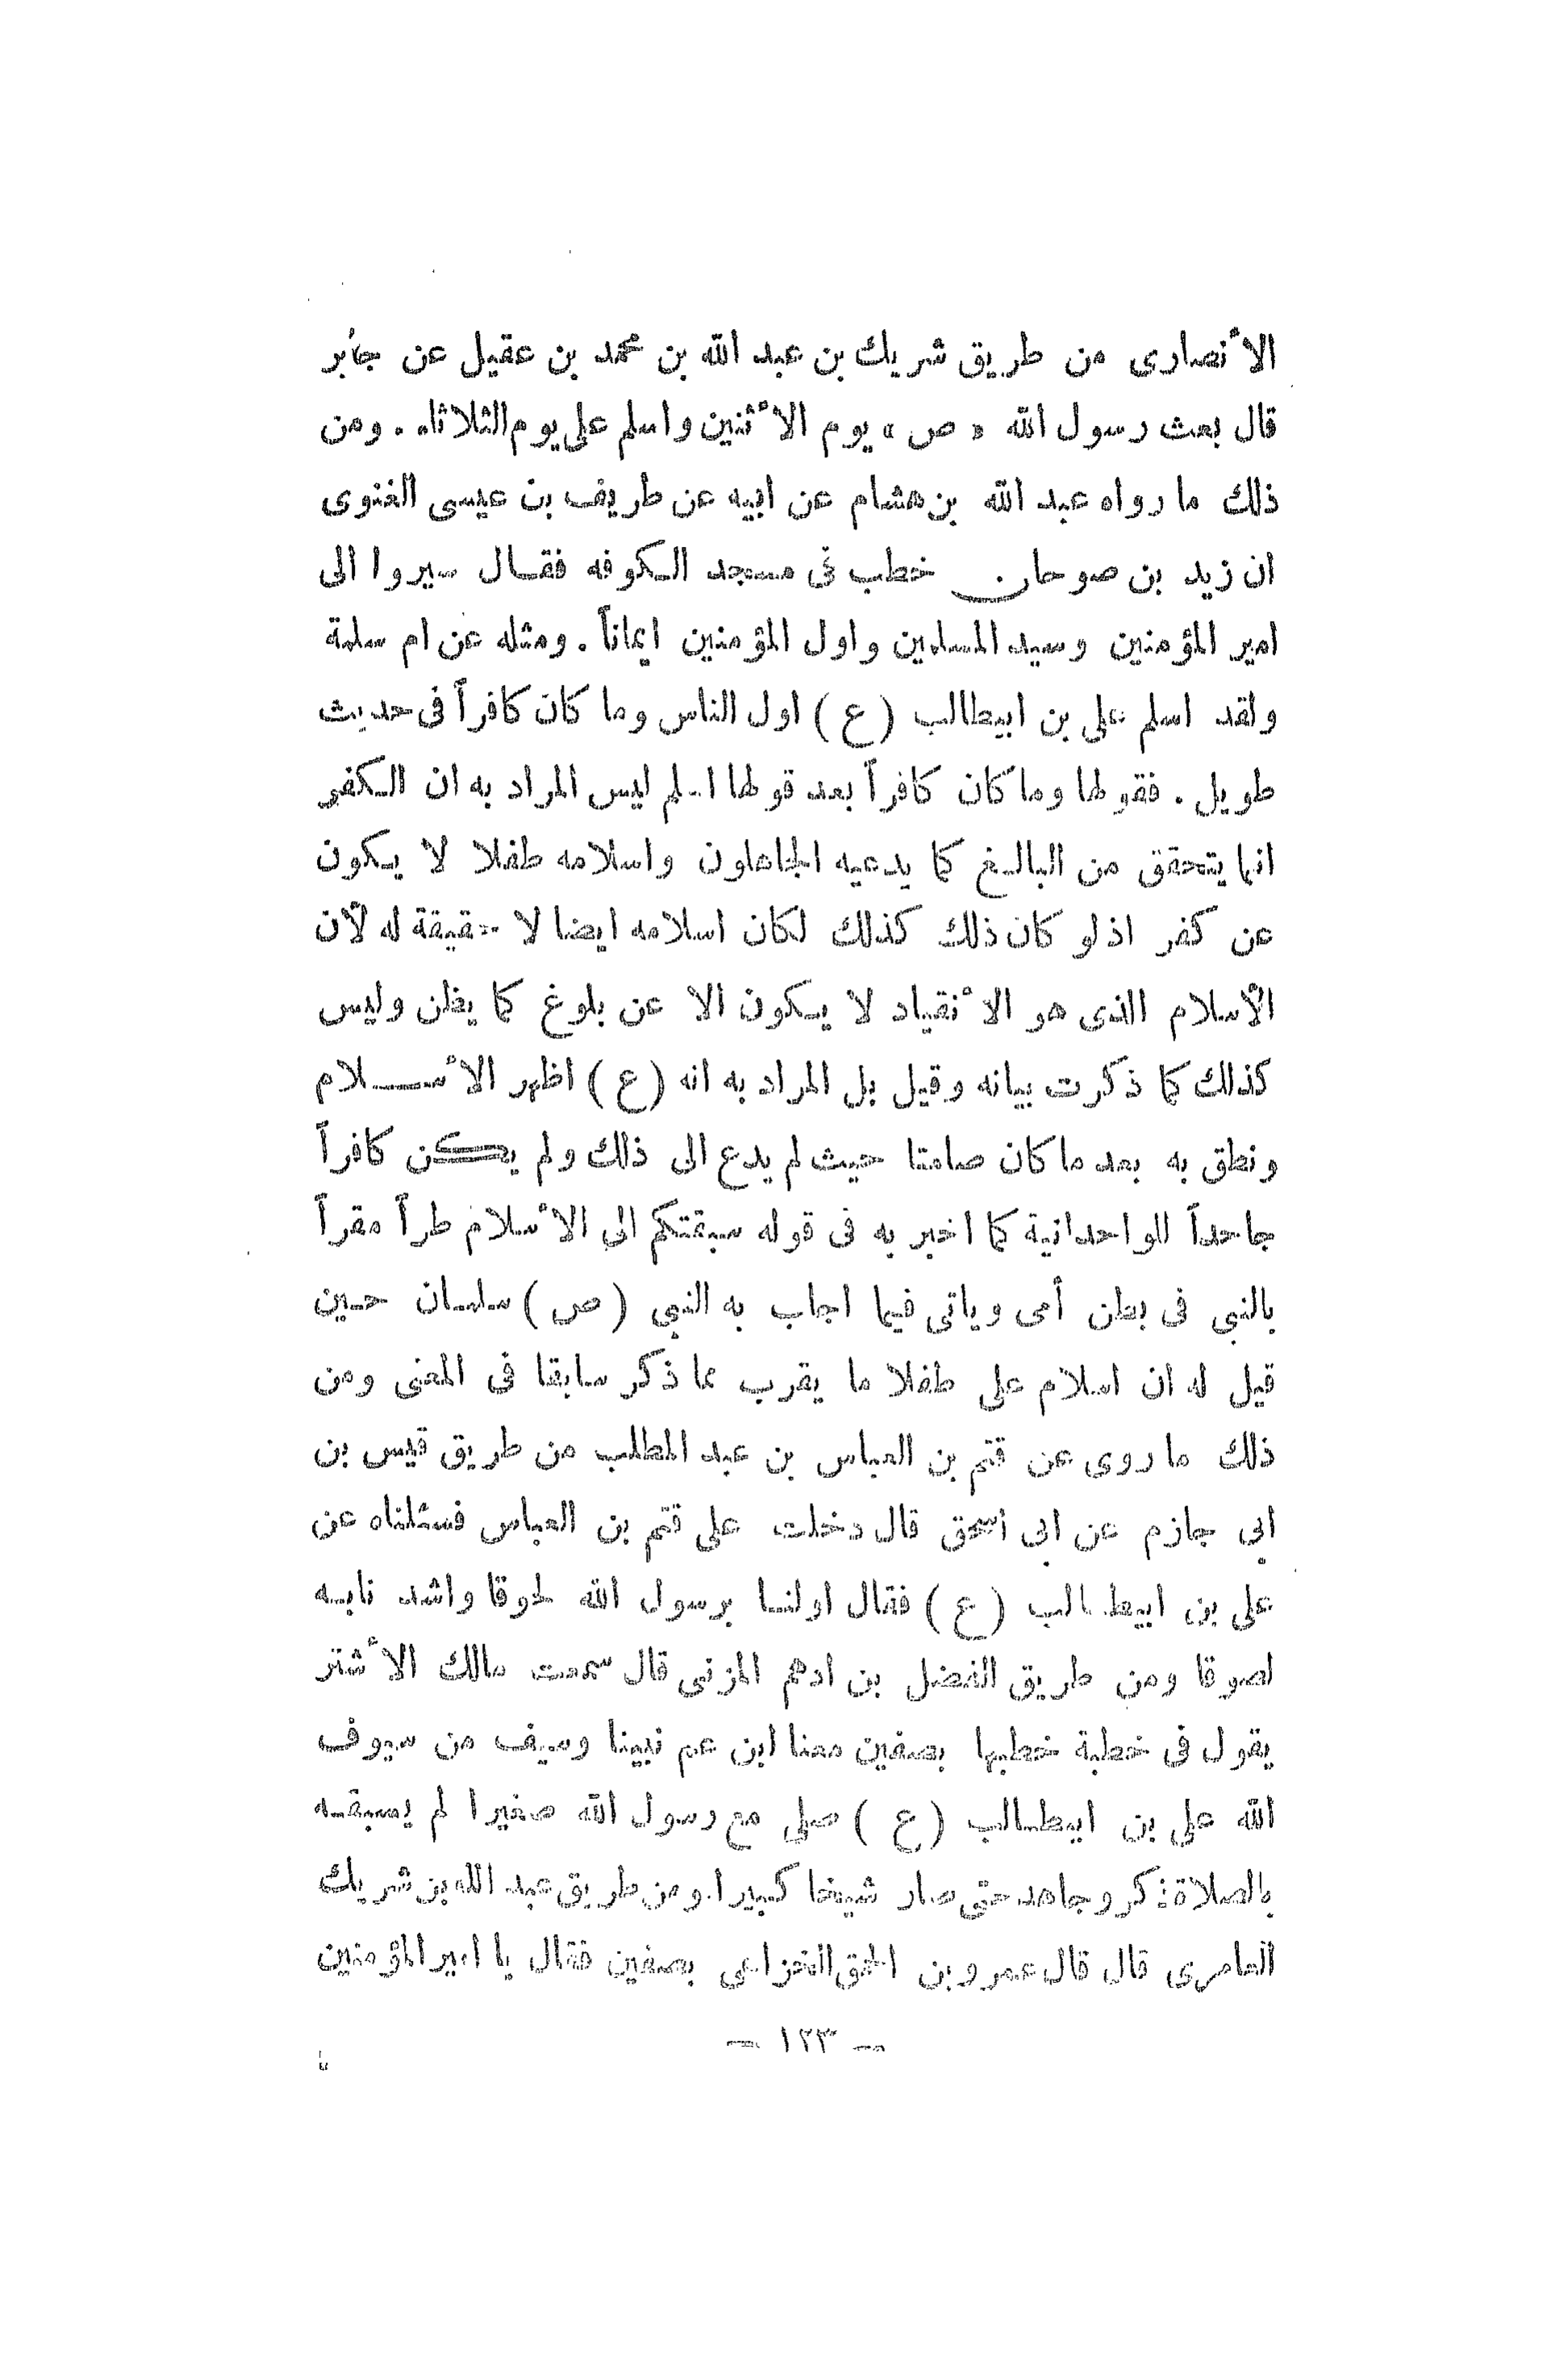 الأنصارى من طريق شريك بن عبد الله بن محمد بن عقيل عن جأبر
قال بعث رسول الله « ص » يوم الأثنين واسلم على يوم الثلاثاء . ومن
ذلك ما رواه عبد الله بن هشام عن ابيه عن طريف بن عيسى الغنوى
ان زيد بن صوحان خطب فى مسجد الكوفه فقال سيروا الى
امير المؤمنين وسيد المسلمين واول المؤمنين ايماناً . ومثله عن ام سلمة
ولقد اسلم على بن ابيطالب ( ع ) اول الناس وما كان كافراً فى حديث
طويل . فقولها وما كان كافراً بعد قولها اسلم ليس المراد به ان الكفر
انما يتحقق من البالغ كما يدعيه الجاهلون واسلامه طفلا لا يكون
عن كفر اذ لو كان ذلك كذلك لكان اسلامه ايضا لا حقيقة له لأن
الأسلام الذى هو الأنقياد لا يكون الا عن بلوغ كما يظن وليس
كذلك كما ذكرت بيانه وقيل بل المراد به انه ( ع ) اظهر الأسلام
ونطق به بعد ما كان صامتا حيث لم يدع الى ذلك ولم يكن كافراً
جاحداً للواحدانية كما اخبر به فى قوله سبقتكم الى الأسلام طراً مقراً
بالنبى فى بطن أمى وياتى فيما اجاب به النبى ( ص ) سلمان حين
قيل له ان اسلام على طفلا ما يقرب مما ذكر سابقا فى المعنى ومن
ذلك ما روى عن قثم بن العباس بن عبد المطلب من طريق قيس بن
ابى حازم عن ابى اسحق قال دخلت على قثم بن العباس فسئلناه عن
على بن ابيطالب ( ع ) فقال اولنا برسول الله لحوقا واشد نابه
لصوقا ومن طريق الفضل بن ادهم المزنى قال سمعت مالك الأشتر
يقول فى خطبة خطبها بصفين معنا ابن عم نبينا وسيف من سيوف
الله على بن ابيطالب ( ع ) صلى مع رسول الله صغيرا لم يسبقه
بالصلاة ذكر وجاهد حتى صار شيخا كبيرا . ومن طريق عبد الله بن شريك
العامرى قال قال عمرو بن الحمق الخزاعى بصفين فقال يا امير المؤمنين
— ١٢٣ —